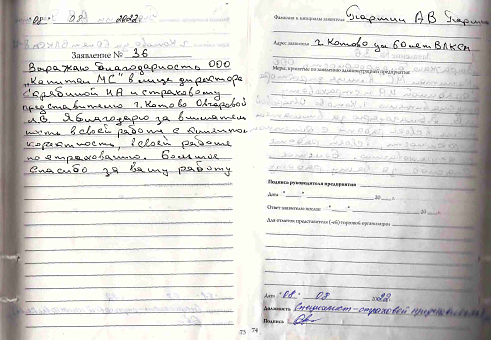 08 08 2022
Заявление № 36
Выражаю благодарность ООО
„Капитал МС" в лице директора
Скрябиной И А и страховому
представителю г. Котово
ЛВ. Я благодарю за вниматель
ность в своей работе с клиентом
коректность, в своей работе
по страхованию. Большое
спасибо за вашу работу
73
Фамилия и инициалы заявителя
А В
Адрес заявителя г. Котово ул 60 лет ВЛКСМ
Меры, принятые по заявлению администрацией предприятия:
Подпись руководителя предприятия
Дата "___" 20 г.
Ответ заявителю послан "___" 20 г.
Для отметок представителя (-ей) торговой организации
Дата "08" 08 2022
Должность Специалист-страховой представитель
Подпись
74